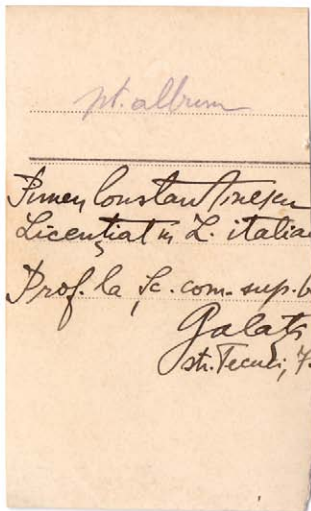 pt. album
Pimen Constantinescu
Licențiat în L. italia
Prof. la Sc. com. sup. b
Galați
str. Tecuci, 7